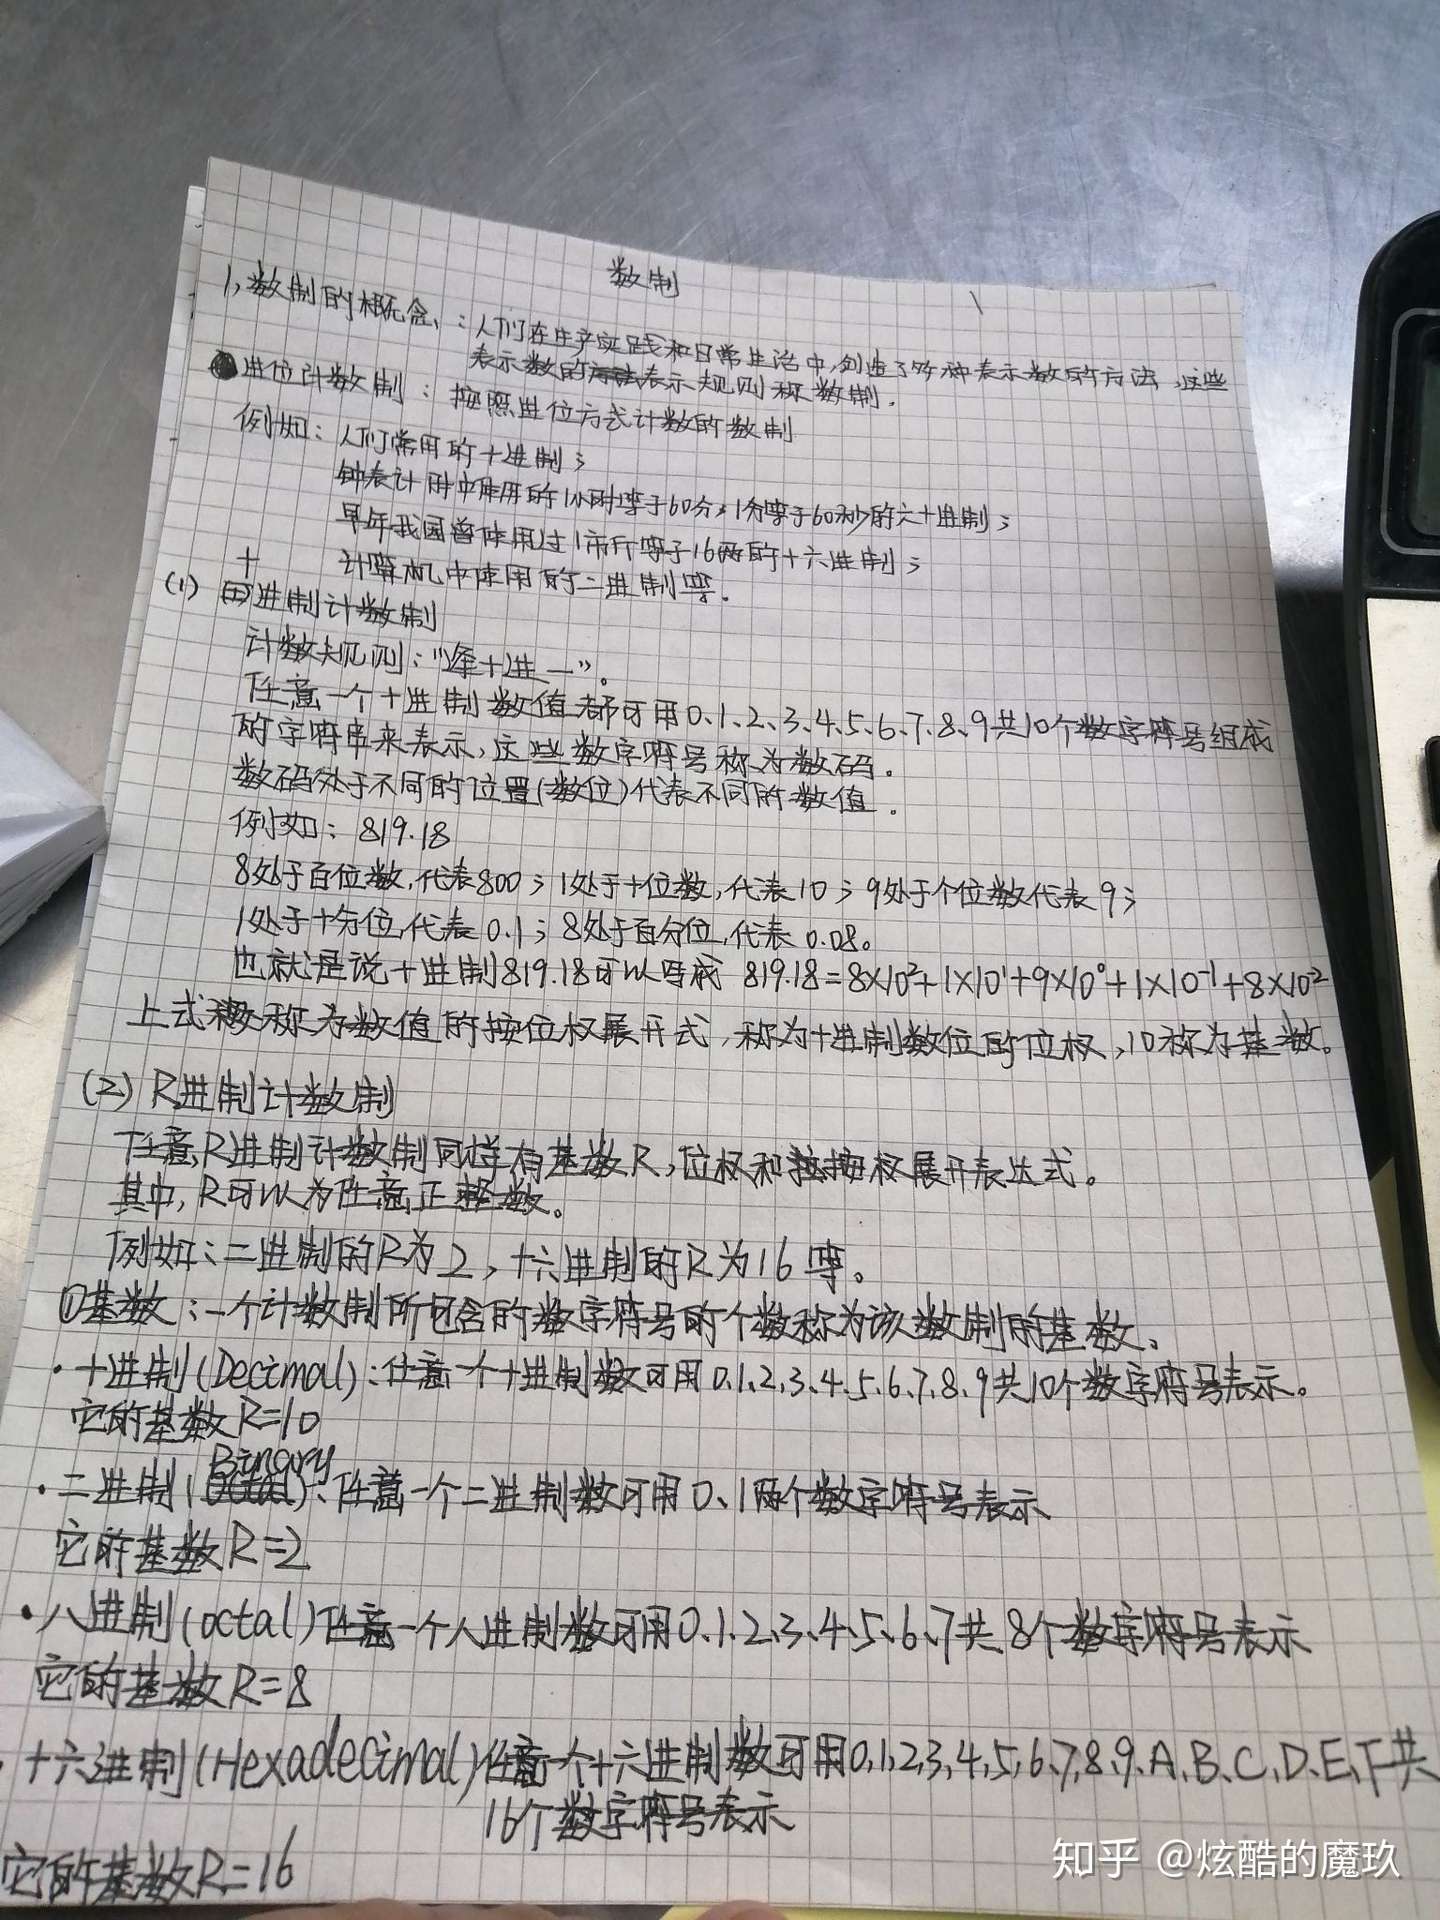 数制
1,数制的概念:人们在生产实践和日常生活中,创造了多种表示数的方法,这些
表示数的表示规则称数制.
进位计数制:按照进位方式计数的数制
例如:人们常用的十进制;
钟表计时中使用的1小时等于60分,1分等于60秒的六十进制;
早年我国曾使用过1市斤等于16两的十六进制;
计算机中使用的二进制等.
(1)十进制计数制
计数规则:"逢十进一"。
任意一个十进制数值都可用0、1、2、3、4、5、6、7、8、9共10个数字符号组成
的字符串来表示,这些数字符号称为数码.
数码处于不同的位置(数位)代表不同的数值.
例如:819.18
8处于百位数,代表800;1处于十位数,代表10;9处于个位数代表9;
1处于十分位,代表0.1;8处于百分位,代表0.08。
也就是说十进制819.18可以写成 819.18=8×10²+1×10¹+9×10⁰+1×10⁻¹+8×10⁻²
上式称为数值的按位权展开式,称为十进制数位的位权,10称为基数。
(2)R进制计数制
任意R进制计数制同样有基数R,位权和按权展开表达式。
其中,R可以为任意正整数。
例如:二进制的R为2,十六进制的R为16等。
①基数:一个计数制所包含的数字符号的个数称为该数制的基数.
·十进制(Decimal):任意一个十进制数可用0、1、2、3、4、5、6、7、8、9共10个数字符号表示。
它的基数R=10
Binary
·二进制():任意一个二进制数可用0、1两个数字符号表示
它的基数R=2
·八进制(octal)任意一个八进制数可用0、1、2、3、4、5、6、7共8个数字符号表示
它的基数R=8
·十六进制(Hexadecimal)任意一个十六进制数可用0,1,2,3,4,5,6,7,8,9,A、B、C、D、E、F共
16个数字符号表示
它的基数R=16
知乎 @炫酷的魔玖